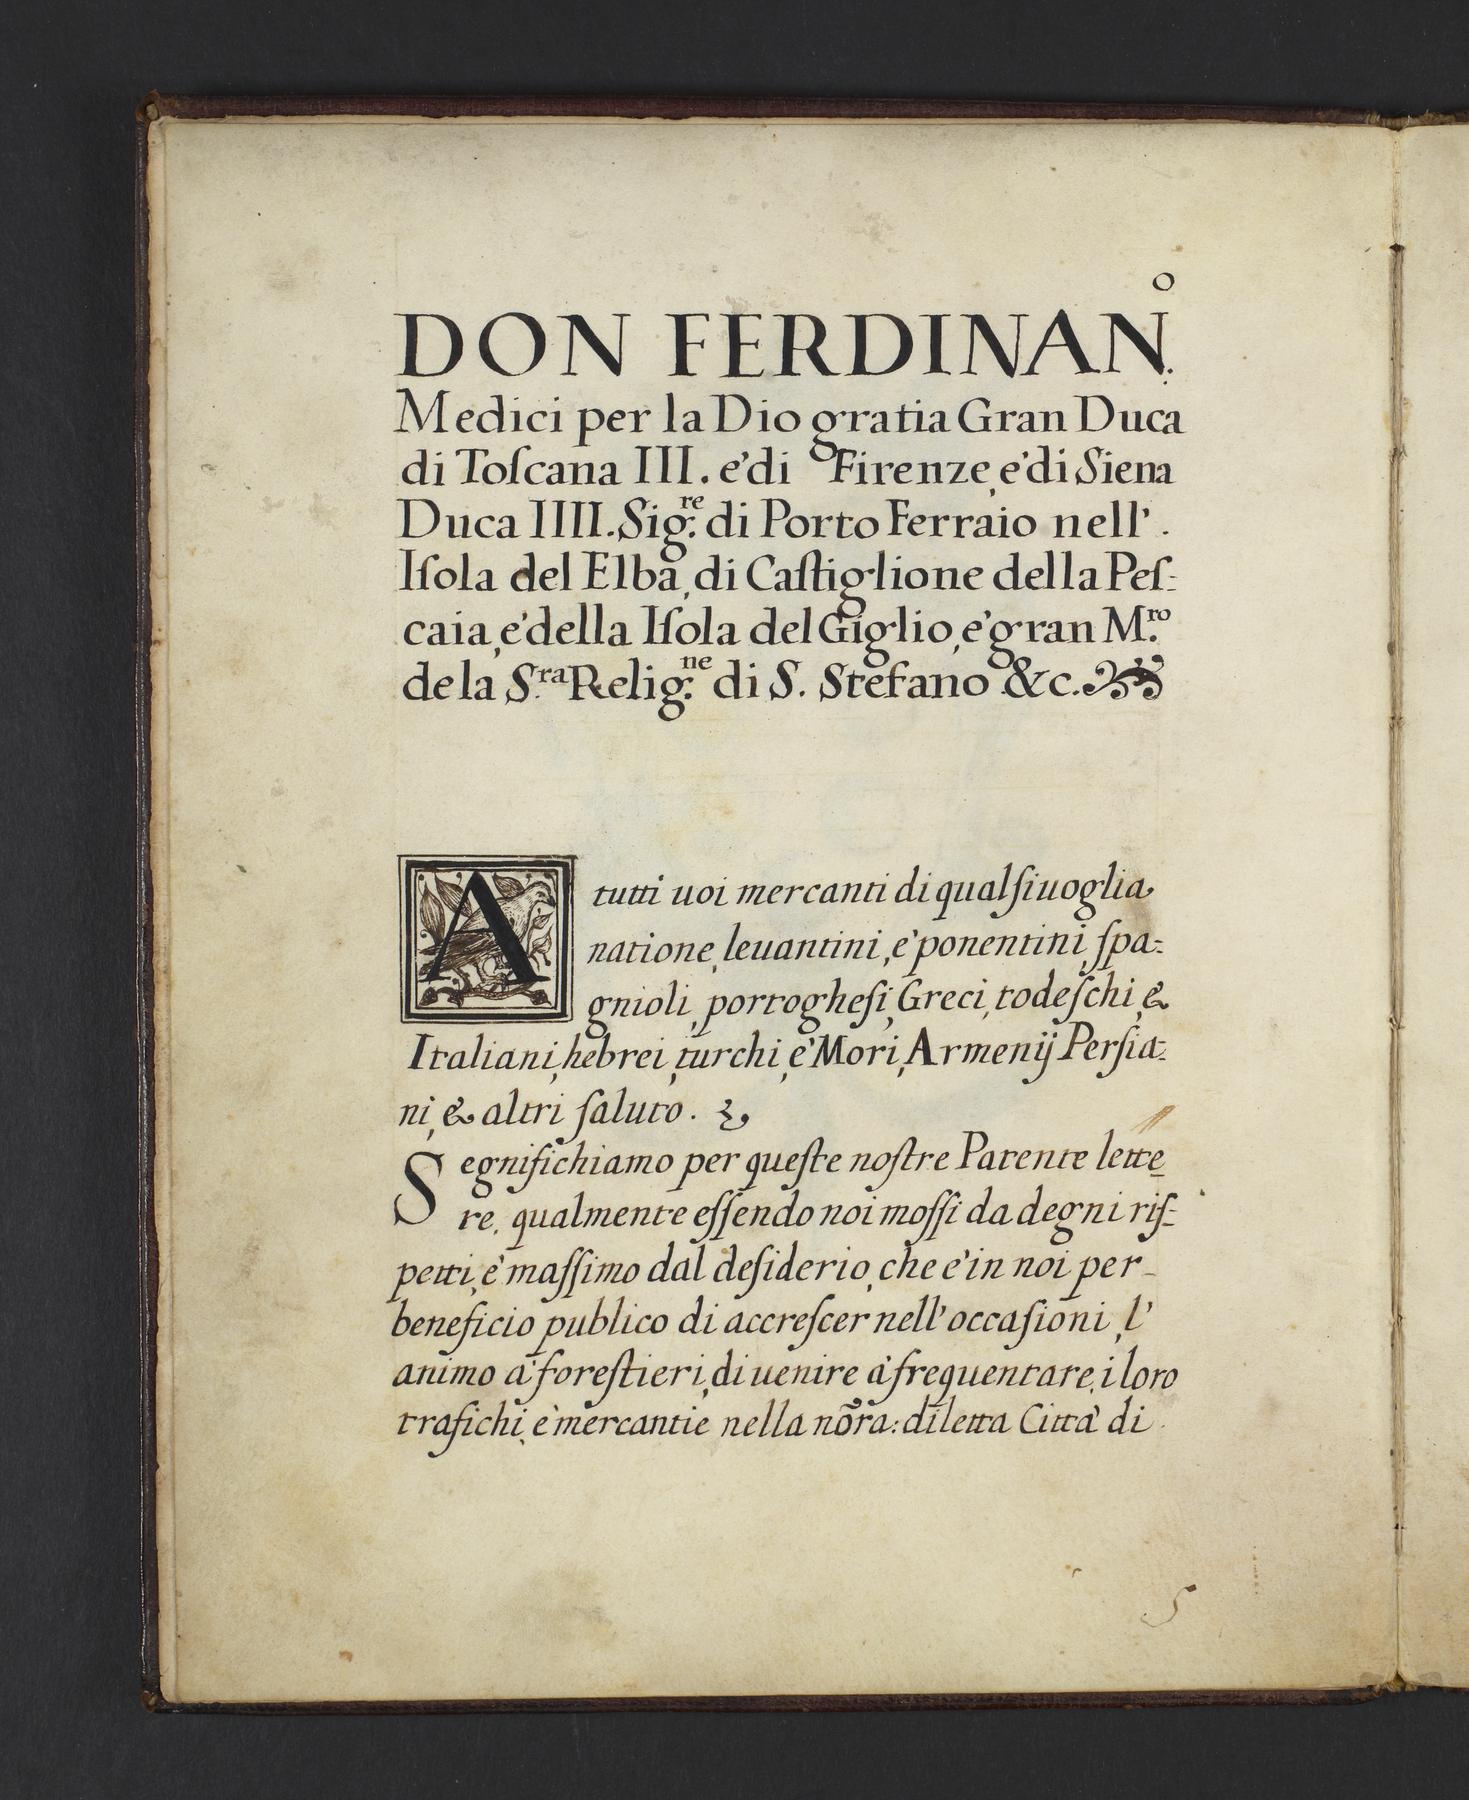 DON FERDINAN.º
Medici per la Dio gratia Gran Duca
di Toſcana III. e' di Firenze, e' di Siena
Duca IIII. Sig.re di Porto Ferraio nell' .
Iſola del Elba, di Caſtiglione della Peſ-
caia, e' della Iſola del Giglio, e' gran M.ro
de la S.ra Relig.ne di S. Stefano &c.
A tutti uoi mercanti di qualſiuoglia
natione, leuantini, e' ponentini, ſpa-
gnioli, portogheſi, Greci, todeſchi, &
Italiani, hebrei, turchi, e' Mori, Armenij Perſia-
ni, & altri ſaluto.
Segnifichiamo per queſte noſtre Patente lette
re, qualmente eſſendo noi moſſi da degni riſ-
petti, e' maſſimo dal deſiderio, che e' in noi per
beneficio publico di accreſcer nell' occaſioni, l'
animo a' foreſtieri, di uenire a' frequentare, i loro
trafichi, e' mercantie nella nõra: diletta Citta' di
5